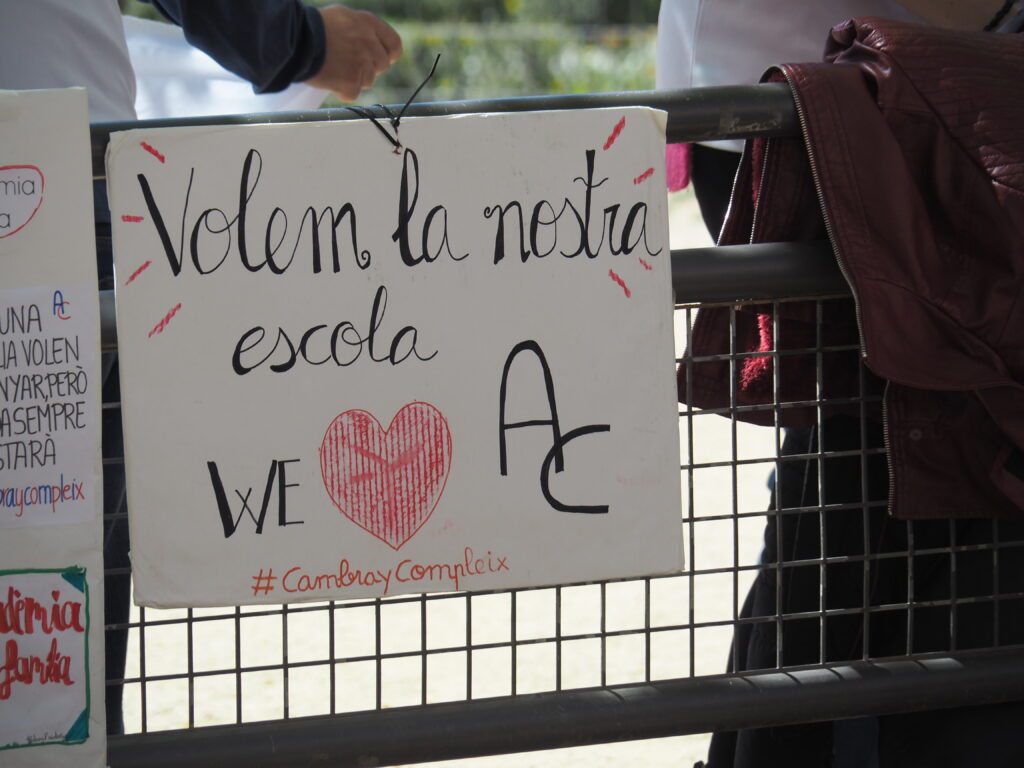 mia
a
UNA AC
IA VOLEN
NYAR, PERÒ
A SEMPRE
STARÀ
braycompleix
dèmia
família
Volem la nostra
escola
WE
AC
#CambrayCompleix